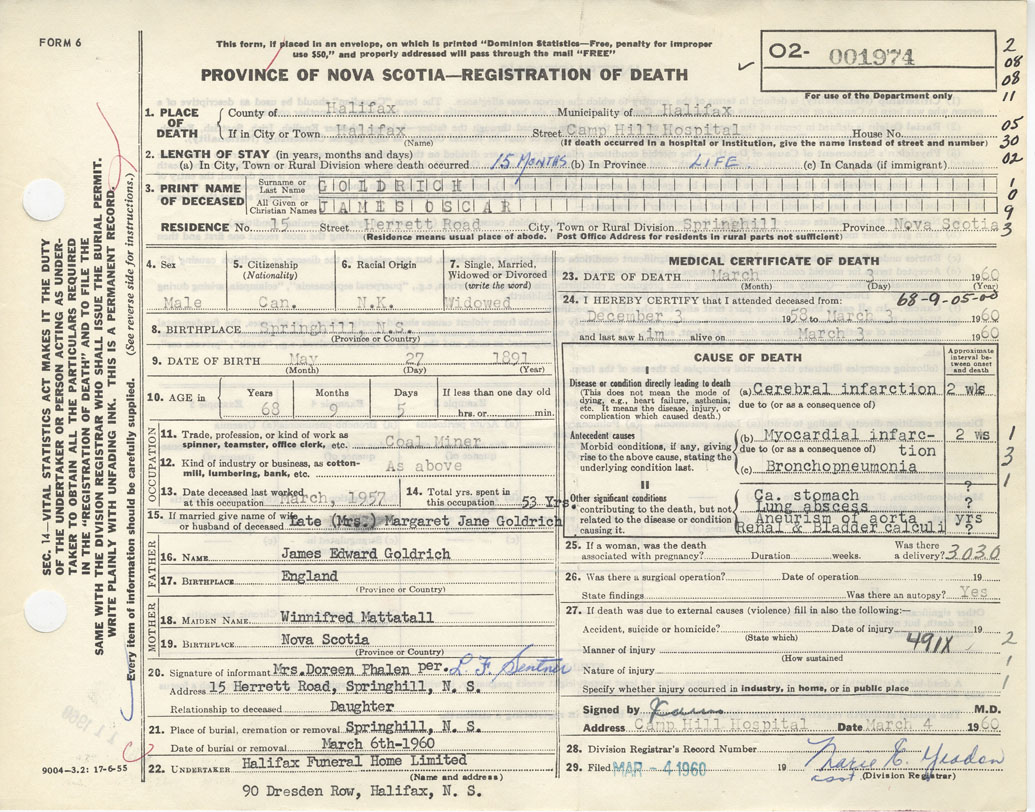 FORM 6
This form, if placed in an envelope, on which is printed "Dominion Statistics—Free, penalty for improper
use $50," and properly addressed will pass through the mail "FREE"
PROVINCE OF NOVA SCOTIA—REGISTRATION OF DEATH
O2- 001974
For use of the Department only
2
08
08
11
05
30
02
1
0
9
3
1. PLACE OF DEATH County of Halifax Municipality of Halifax
If in City or Town Halifax Street Camp Hill Hospital House No.
(Name) (If death occurred in a hospital or institution, give the name instead of street and number)
2. LENGTH OF STAY (in years, months and days)
(a) In City, Town or Rural Division where death occurred 15 MONTHS (b) In Province LIFE (c) In Canada (if immigrant)
3. PRINT NAME OF DECEASED Surname or Last Name GOLDRICH
All Given or Christian Names JAMES OSCAR
RESIDENCE No. 15 Street Herrett Road City, Town or Rural Division Springhill Province Nova Scotia
(Residence means usual place of abode. Post Office Address for residents in rural parts not sufficient)
4. Sex Male
5. Citizenship (Nationality) Can.
6. Racial Origin N.K.
7. Single, Married, Widowed or Divorced (write the word) Widowed
8. BIRTHPLACE Springhill, N.S.
(Province or Country)
9. DATE OF BIRTH May 27 1891
(Month) (Day) (Year)
10. AGE in Years Months Days If less than one day old
68 9 5 hrs. or min.
OCCUPATION
11. Trade, profession, or kind of work as spinner, teamster, office clerk, etc. Coal Miner
12. Kind of industry or business, as cotton-mill, lumbering, bank, etc. As above
13. Date deceased last worked at this occupation March, 1957
14. Total yrs. spent in this occupation 53 Yrs.
15. If married give name of wife or husband of deceased Late (Mrs.) Margaret Jane Goldrich
FATHER
16. NAME James Edward Goldrich
17. BIRTHPLACE England
(Province or Country)
MOTHER
18. MAIDEN NAME Winnifred Mattatall
19. BIRTHPLACE Nova Scotia
(Province or Country)
20. Signature of informant Mrs.Doreen Phalen per. L. F. Sentner
Address 15 Herrett Road, Springhill, N. S.
Relationship to deceased Daughter
21. Place of burial, cremation or removal Springhill, N. S.
Date of burial or removal March 6th-1960
22. UNDERTAKER Halifax Funeral Home Limited
(Name and address)
90 Dresden Row, Halifax, N. S.
MEDICAL CERTIFICATE OF DEATH
23. DATE OF DEATH March 3 1960
(Month) (Day) (Year)
68-9-05-00
24. I HEREBY CERTIFY that I attended deceased from:
December 3 1958 to March 3 1960
and last saw him alive on March 3 1960
CAUSE OF DEATH
Approximate interval between onset and death
I
Disease or condition directly leading to death
(This does not mean the mode of dying, e.g., heart failure, asthenia, etc. It means the disease, injury, or complication which caused death.)
(a) Cerebral infarction 2 wks
due to (or as a consequence of)
Antecedent causes
Morbid conditions, if any, giving rise to the above cause, stating the underlying condition last.
(b) Myocardial infarc- 2 ws
due to (or as a consequence of) tion
(c) Bronchopneumonia
II
Other significant conditions
contributing to the death, but not related to the disease or condition causing it.
Ca. stomach ?
Lung abscess ?
Aneurism of aorta yrs
Renal & Bladder calculi ?
1
3
1
25. If a woman, was the death associated with pregnancy? Duration weeks. Was there a delivery? 3030
26. Was there a surgical operation? Date of operation 19
State findings Was there an autopsy? Yes
27. If death was due to external causes (violence) fill in also the following:—
Accident, suicide or homicide? Date of injury 19
(State which)
Manner of injury 491X
(How sustained
Nature of injury
Specify whether injury occurred in industry, in home, or in public place
2
1
1
Signed by M.D.
Address Camp Hill Hospital Date March 4 1960
28. Division Registrar's Record Number
29. Filed MAR - 4 1960 19 Marie E.
asst (Division Registrar)
SEC. 14—VITAL STATISTICS ACT MAKES IT THE DUTY
OF THE UNDERTAKER OR PERSON ACTING AS UNDER-
TAKER TO OBTAIN ALL THE PARTICULARS REQUIRED
IN THE "REGISTRATION OF DEATH" AND TO FILE THE
SAME WITH THE DIVISION REGISTRAR WHO SHALL ISSUE THE BURIAL PERMIT.
WRITE PLAINLY WITH UNFADING INK. THIS IS A PERMANENT RECORD.
Every item of information should be carefully supplied. (See reverse side for instructions.)
9004-3.2: 17-6-55